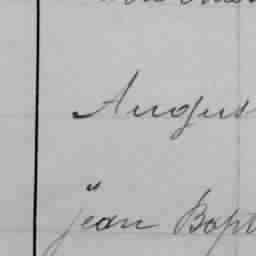 Augus
jean Bapt